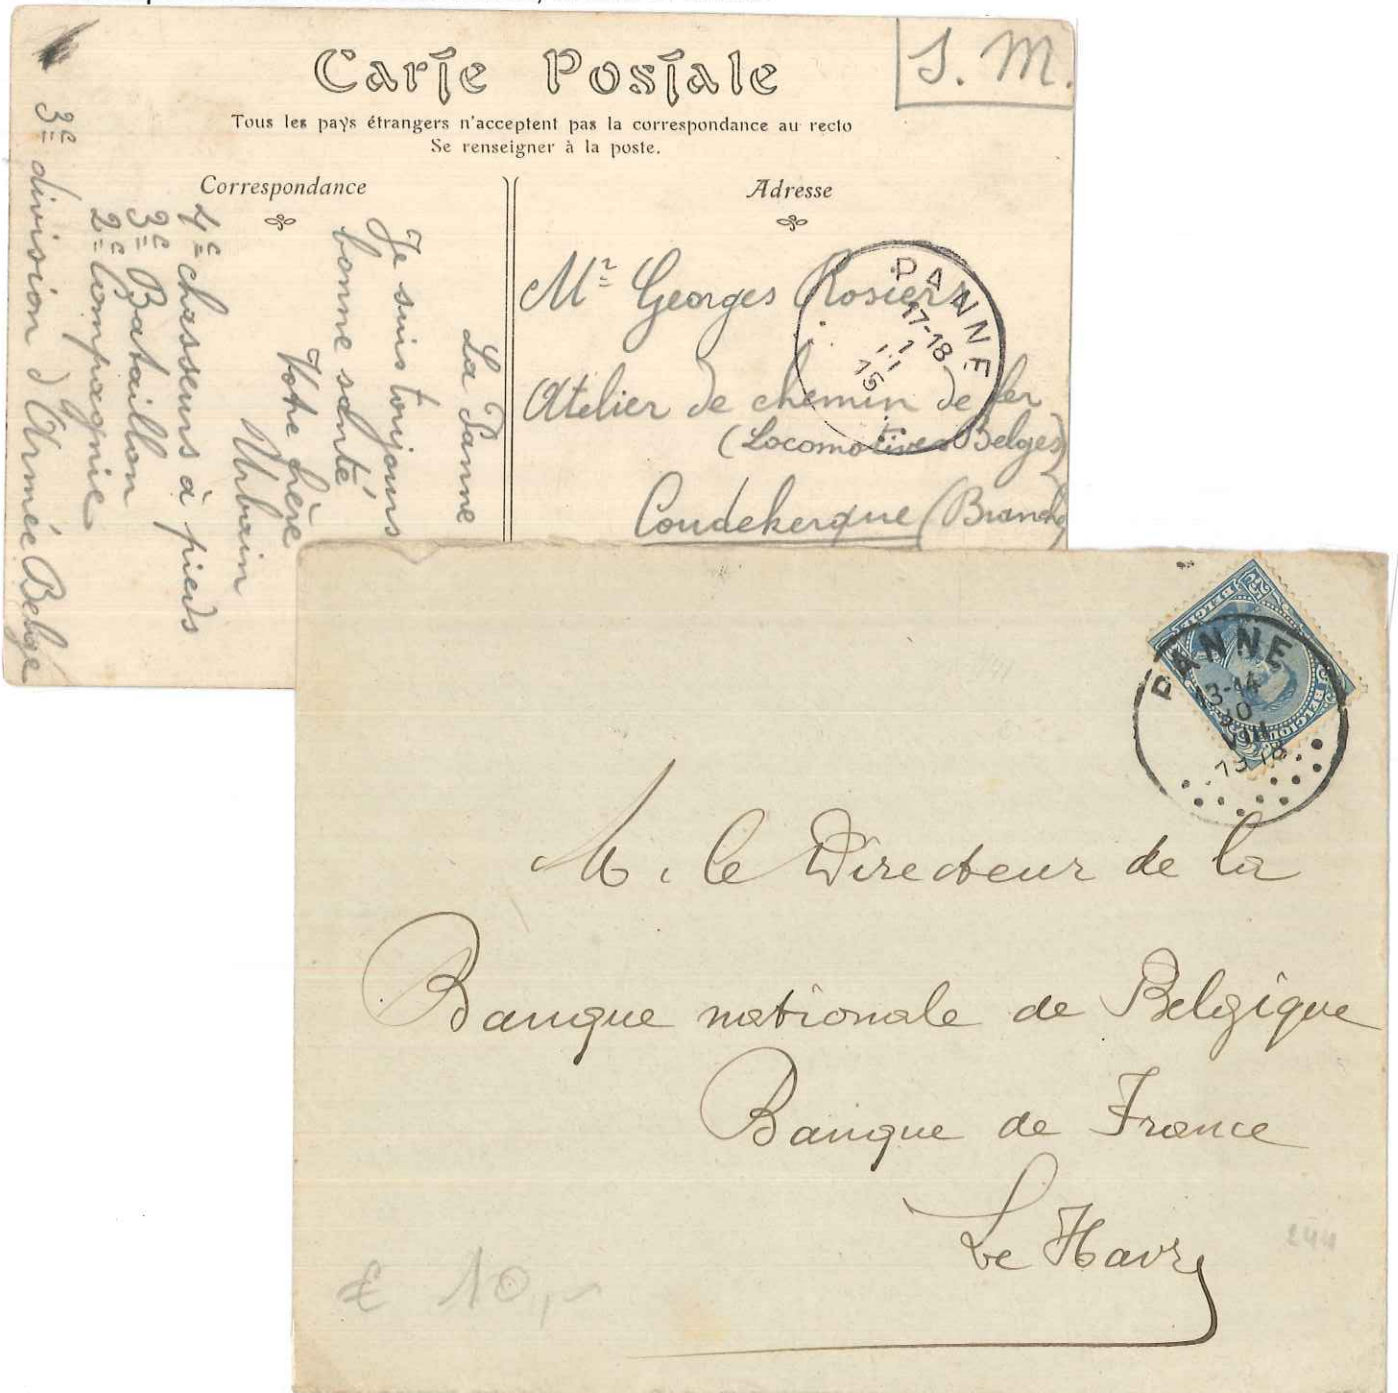 Carte Postale
S. M.
Tous les pays étrangers n'acceptent pas la correspondance au recto
Se renseigner à la poste.
Correspondance
Adresse
La Panne
Je suis toujours
bonne santé
Votre frère
Urbain
4e chasseurs à pieds
3e Bataillon
2e Compagnie
3e division d'Armée Belge
Mr Georges Rosiers
Atelier de chemin de fer
(Locomotives Belges)
Coudekerque (Branche
PANNE
17-18
1
III
15
BELGIQUE
25
BELGIQUE
PANNE
13-14
10
VIII
1918
M. le Directeur de la
Banque nationale de Belgique
Banque de France
Le Havre
244
€ 10,-